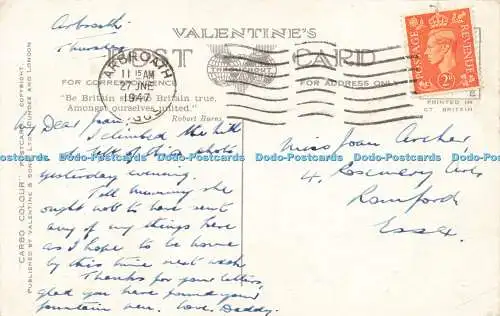 Arbroath.
Thursday
VALENTINE'S
POST CARD
FOR CORRESPONDENCE
FOR ADDRESS ONLY
ARBROATH
11 15 AM
27 JNE
1947
"Be Britain still to Britain true,
Amongst ourselves united."
Robert Burns
POSTAGE REVENUE
2D
PRINTED IN
GT BRITAIN
"CARBO COLOUR" POSTCARD
COPYRIGHT.
PUBLISHED BY VALENTINE & SONS LTD. DUNDEE AND LONDON
My Dear Joan,
I climbed the hill
on left of this photo
yesterday evening.
Tell mummy she
ought not to have sent
any of my things here
as I hope to be home
by this time next week
Thanks for your letters,
glad you have found your
fountain pen. Love, Daddy.
Miss Joan Archer,
4, Rosemary
Romford
Essex.
Dodo-Postcards Dodo-Postcards Dodo-Postcards Dodo-Postcards Dodo-Postcards